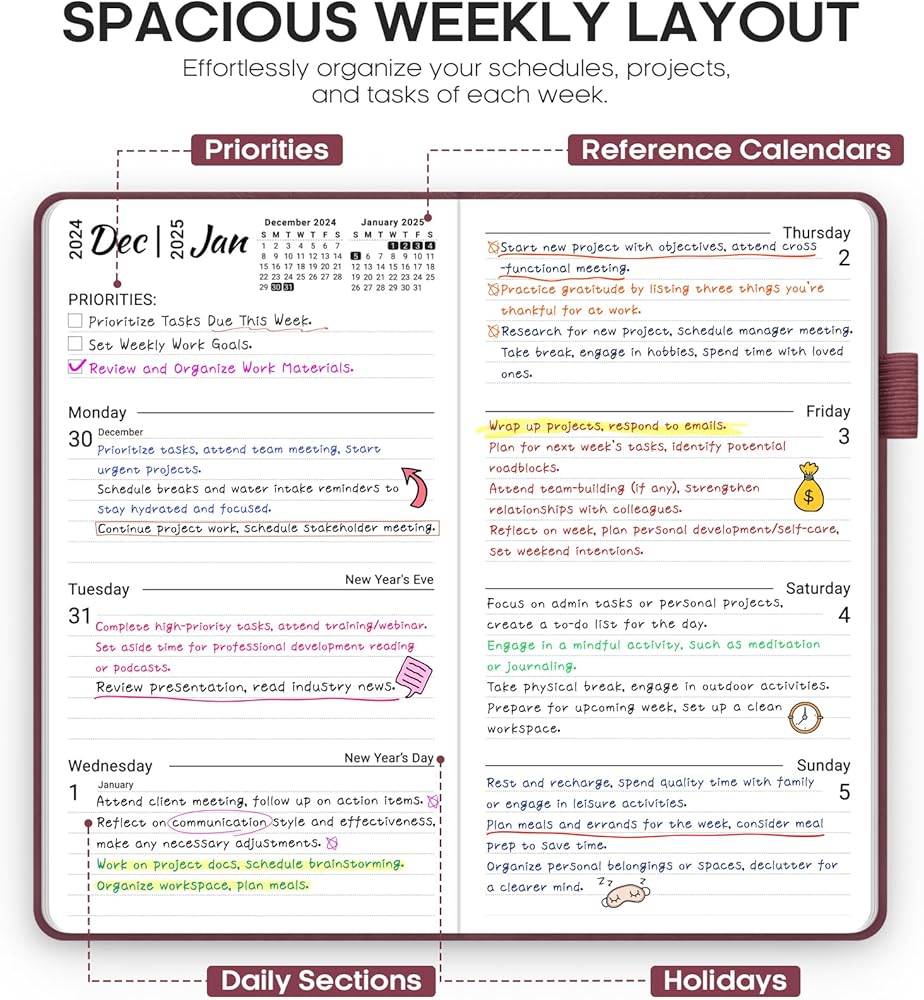 SPACIOUS WEEKLY LAYOUT
Effortlessly organize your schedules, projects,
and tasks of each week.
Priorities
Reference Calendars
2024 Dec | 2025 Jan
December 2024
S M T W T F S
1 2 3 4 5 6 7
8 9 10 11 12 13 14
15 16 17 18 19 20 21
22 23 24 25 26 27 28
29 30 31
January 2025
S M T W T F S
1 2 3 4
5 6 7 8 9 10 11
12 13 14 15 16 17 18
19 20 21 22 23 24 25
26 27 28 29 30 31
PRIORITIES:
Prioritize Tasks Due This Week.
Set Weekly Work Goals.
Review and Organize Work Materials.
Monday
30 December
Prioritize tasks, attend team meeting, start
urgent projects.
Schedule breaks and water intake reminders to
stay hydrated and focused.
Continue project work, schedule stakeholder meeting.
Tuesday
New Year's Eve
31
Complete high-priority tasks, attend training/webinar.
Set aside time for professional development reading
or podcasts.
Review presentation, read industry news.
Wednesday
New Year's Day
1 January
Attend client meeting, follow up on action items.
Reflect on communication style and effectiveness,
make any necessary adjustments.
Work on project docs, schedule brainstorming.
Organize workspace, plan meals.
Thursday
2
Start new project with objectives, attend cross
-functional meeting.
Practice gratitude by listing three things you're
thankful for at work.
Research for new project, schedule manager meeting.
Take break, engage in hobbies, spend time with loved
ones.
Friday
3
Wrap up projects, respond to emails.
Plan for next week's tasks, identify potential
roadblocks.
Attend team-building (if any), strengthen
relationships with colleagues.
Reflect on week, plan personal development/self-care,
set weekend intentions.
$
Saturday
4
Focus on admin tasks or personal projects,
create a to-do list for the day.
Engage in a mindful activity, such as meditation
or journaling.
Take physical break, engage in outdoor activities.
Prepare for upcoming week, set up a clean
workspace.
Sunday
5
Rest and recharge, spend quality time with family
or engage in leisure activities.
Plan meals and errands for the week, consider meal
prep to save time.
Organize personal belongings or spaces, declutter for
a clearer mind.
z z z z
Daily Sections
Holidays